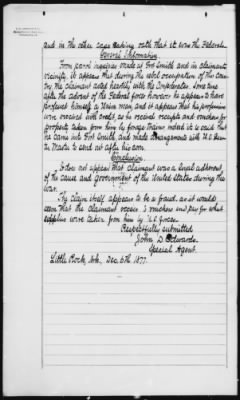 and in the other case making oath that it was the Federals.
General Information.
From parol inquiries made at Fort Smith and in claimants
vicinity. It appears that during the rebel occupation of the coun-
try the claimant acted heartily with the Confederates. Some time
after the advent of the Federal forces however he appears to have
professed himself a Union man, and it appears that his professions
were received with credit, as he received receipts and vouchers for
property taken from him by forage trains indeed it is said that
he came into Fort Smith and made arrangements with A
Master to send out after his corn.
Conclusion.
It does not appear that claimant was a loyal adherent
of the cause and government of the United States during the
war.
The claim itself appears to be a fraud, as it would
seem that the claimant received vouchers and pay for what
supplies were taken from him by U.S. forces.
Respectfully submitted
John D. Edwards
Special Agent.
Little Rock, Ark. Dec. 6th 1877.